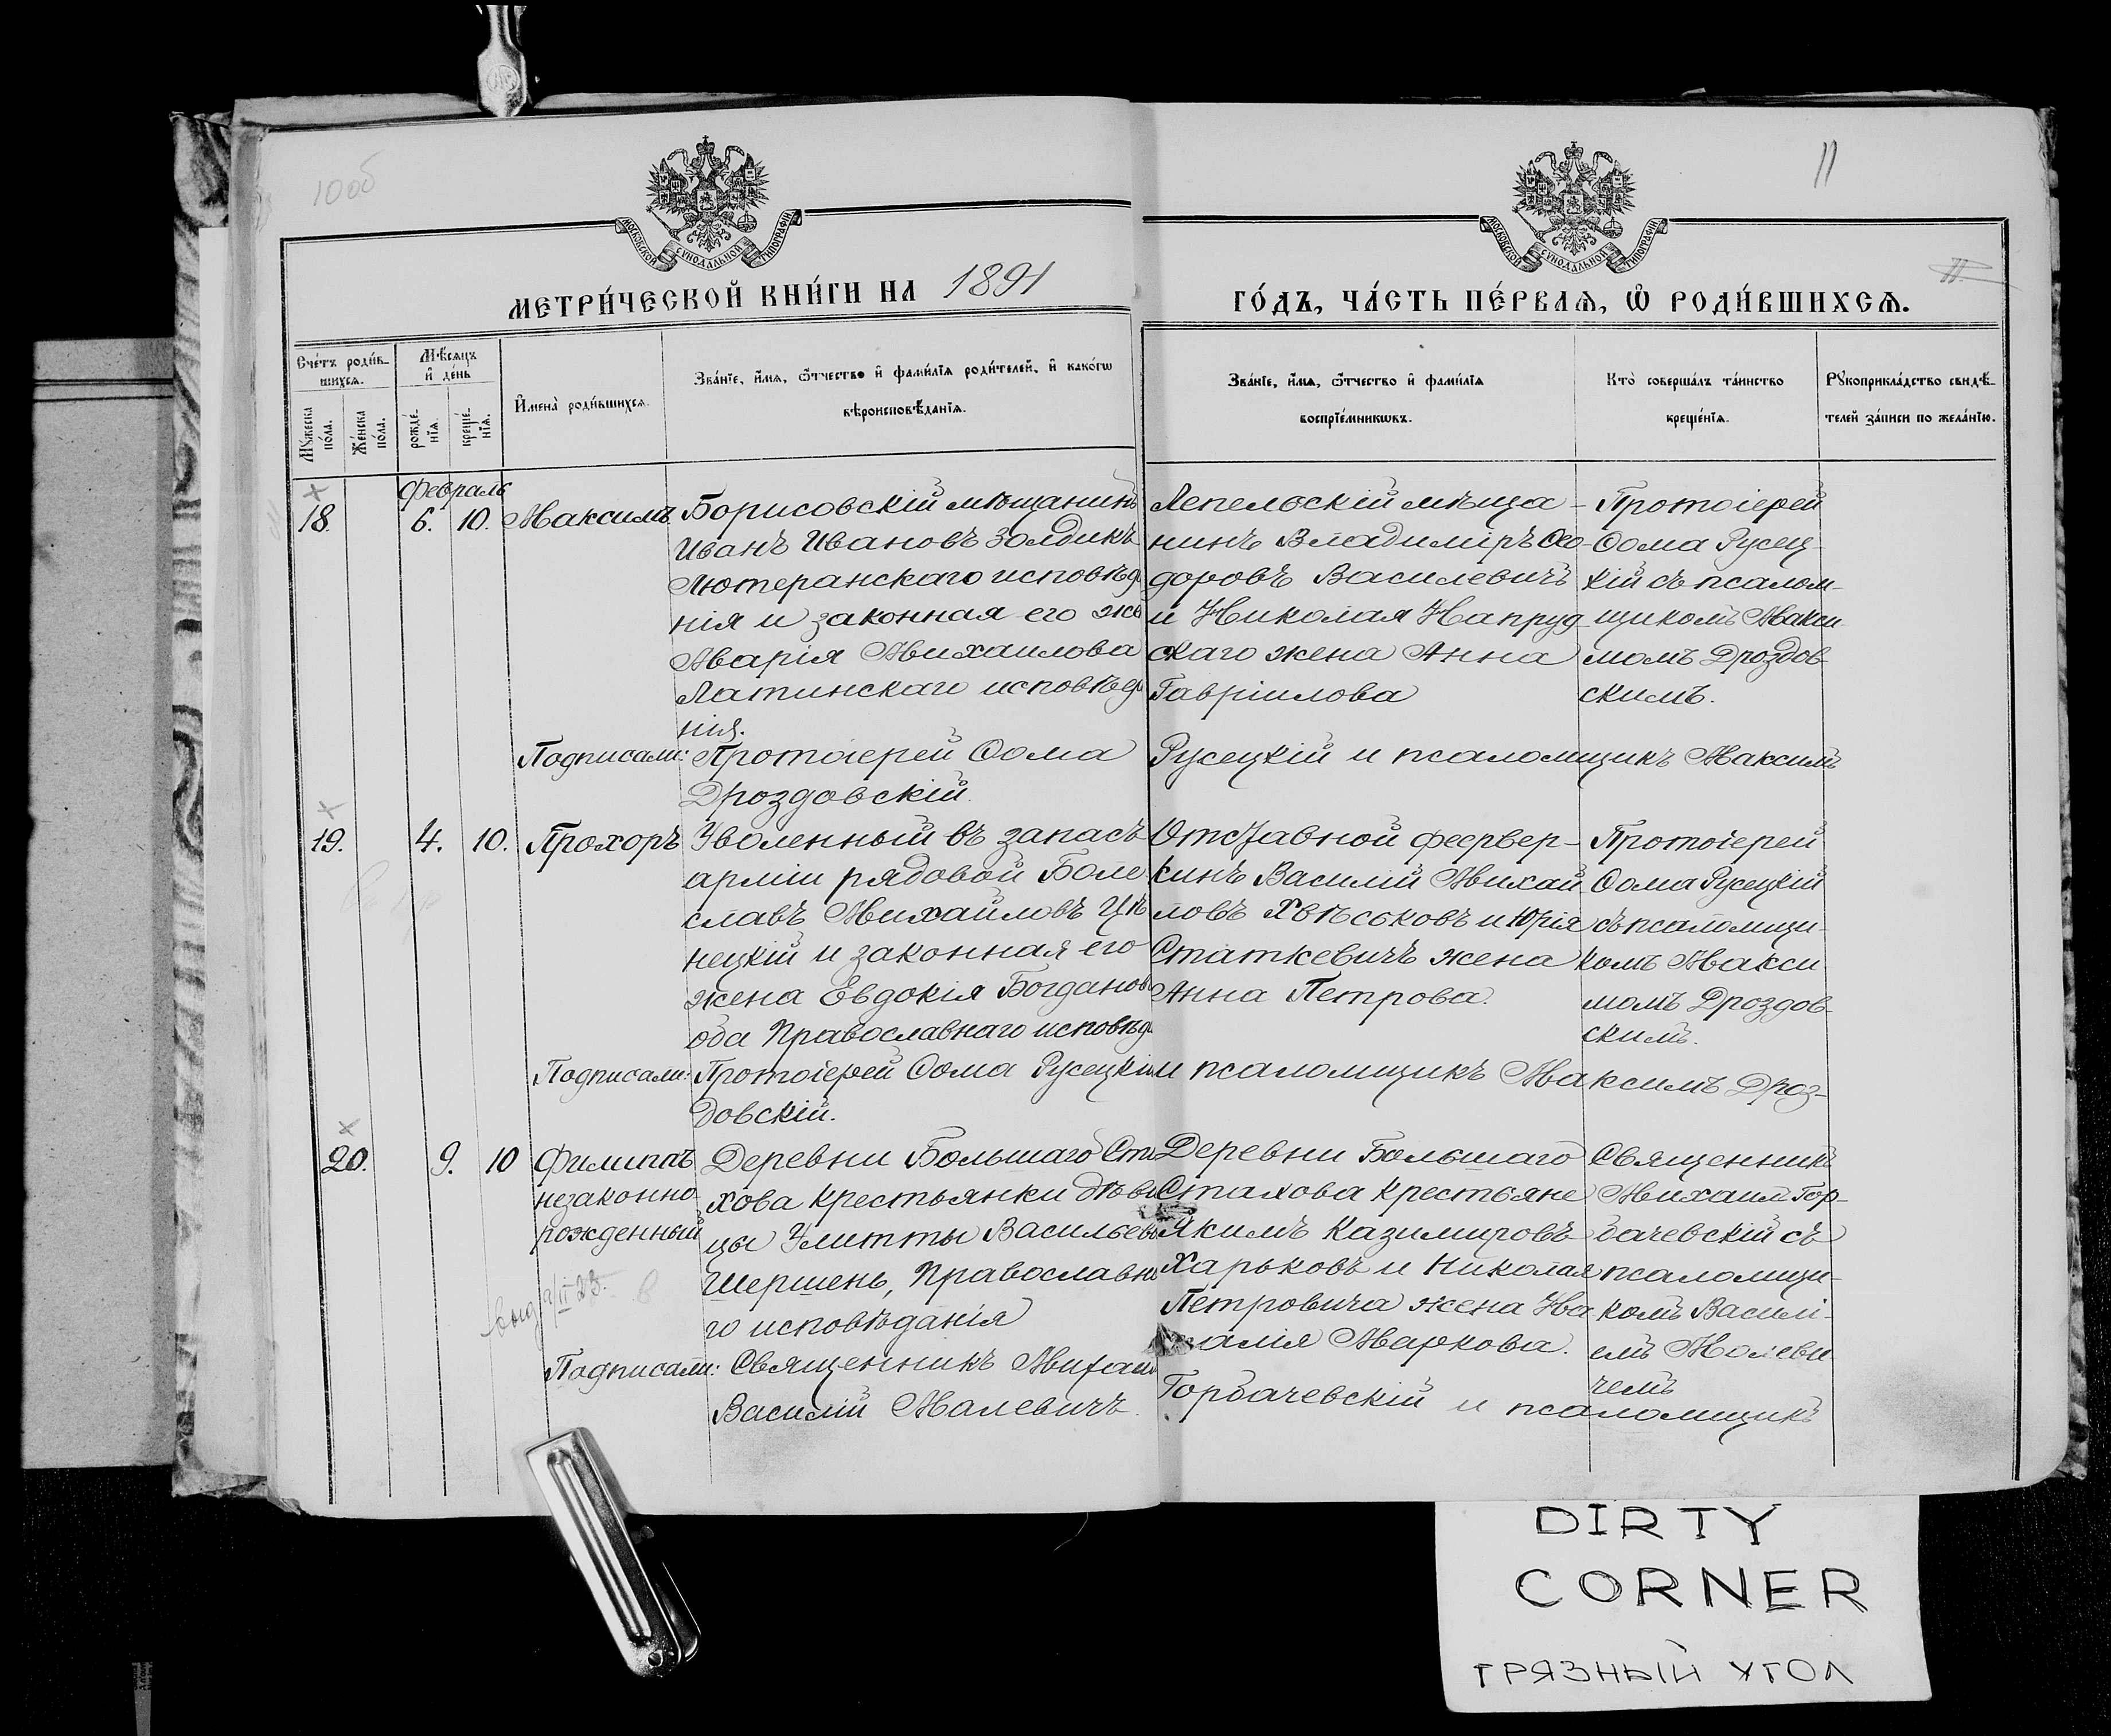 10 об
11
МОСКОВСКОЙ СѴНОДАЛЬНОЙ ТИПОГРАФІИ
МОСКОВСКОЙ СѴНОДАЛЬНОЙ ТИПОГРАФІИ
МЕТРИ́ЧЕСКОЙ КНИ́ГИ НА 1891
ГО́ДЪ, ЧА́СТЬ ПЕ́РВАѦ, Ѡ҆ РОДИ́ВШИХСѦ.
Сче́тъ роди́в-
шихсѧ.
Мѹ́жеска по́ла.
Же́нска по́ла.
Мѣ́сѧцъ
и҆ де́нь
рожде́-
нїѧ.
креще́-
нїѧ.
И҆мена̀ роди́вшихсѧ.
Зва́нїе, и҆́мѧ, ѻ҆́тчество и҆ фами́лїѧ роди́телей, и҆ како́гѡ
вѣроисповѣ́данїѧ.
Зва́нїе, и҆́мѧ, ѻ҆́тчество и҆ фами́лїѧ
воспрїе́мникѡвъ.
Кто̀ соверша́лъ та́инство
креще́нїѧ.
Рѹкоприкла́дство свидѣ́-
телей за́писи по жела́нїю.
Февраль
18. 6. 10. Максимъ
Борисовскій мѣщанинъ
Иванъ Ивановъ Золдикъ
Лютеранскаго исповѣд
нія и законная его же
Марія Михаилова
Латинскаго исповѣд
нія.
Лепельскій мѣща-
нинъ Владиміръ Ѳео-
доровъ Василевичъ
и Николая Напруд
скаго жена Анна
Гавріилова
Протоіерей
Ѳома Русец-
кій съ псалом-
щикомъ Макси
момъ Дроздов-
скимъ.
Подписали: Протоіерей Ѳома Русецкій и псаломщикъ Максимъ
Дроздовскій.
19. 4. 10. Прохоръ
Уволенный въ запасъ
арміи рядовой Боле
славъ Михайловъ Цѣ
нецкій и законная его
жена Евдокія Богданов
оба Православнаго исповѣд
Отставной феервер-
кинъ Василій Михай
ловъ Хвѣськовъ и Юрія
Статкевичъ жена
Анна Петрова.
Протоіерей
Ѳома Русецкій
съ псаломщи-
комъ Макси
момъ Дроздов-
скимъ.
Подписали: Протоіерей Ѳома Русецкій и псаломщикъ Максимъ Дроз-
довскій.
20. 9. 10 Филиппъ
незаконно-
рожденный
Деревни Большаго Ста
хова крестьянки дѣви
цы Улитты Васильев
Шершень, Православна
го исповѣданія
Деревни Большаго
Стахова крестьяне
Якимъ Казимировъ
Харьковъ и Николая
Петровича жена На
талія Маркова.
Священникъ
Михаилъ Гор-
бачевскій съ
псаломщи-
комъ Василі-
емъ Малеви
чемъ
Подписали: Священникъ Михаилъ Горбачевскій и псаломщикъ
Василій Малевичъ.
DIRTY
CORNER
ГРЯЗНЫЙ УГОЛ